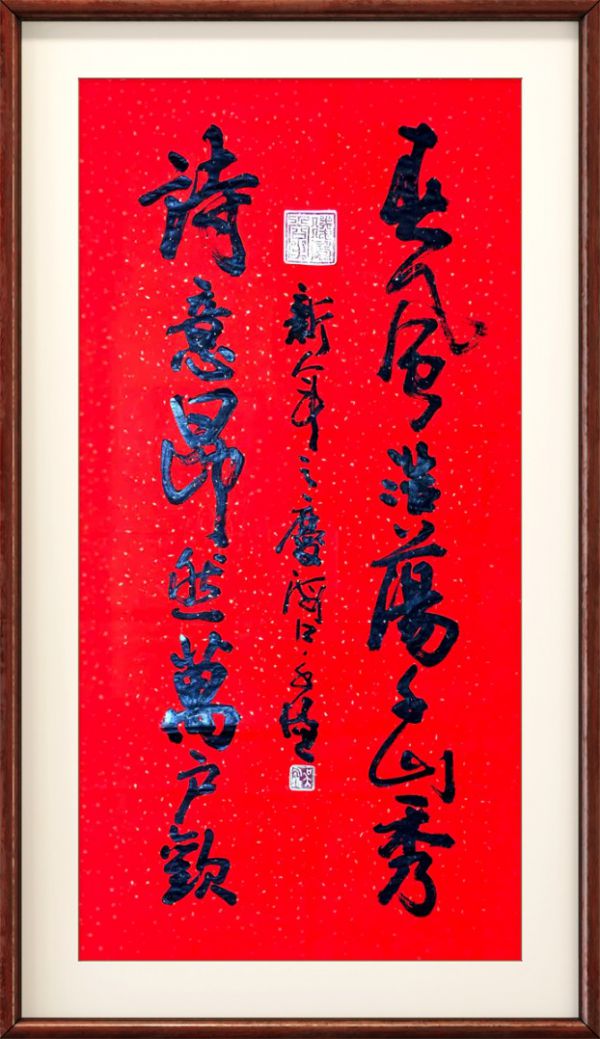 春風浩蕩千山秀
詩意昂然萬戶歡
新年之慶海口